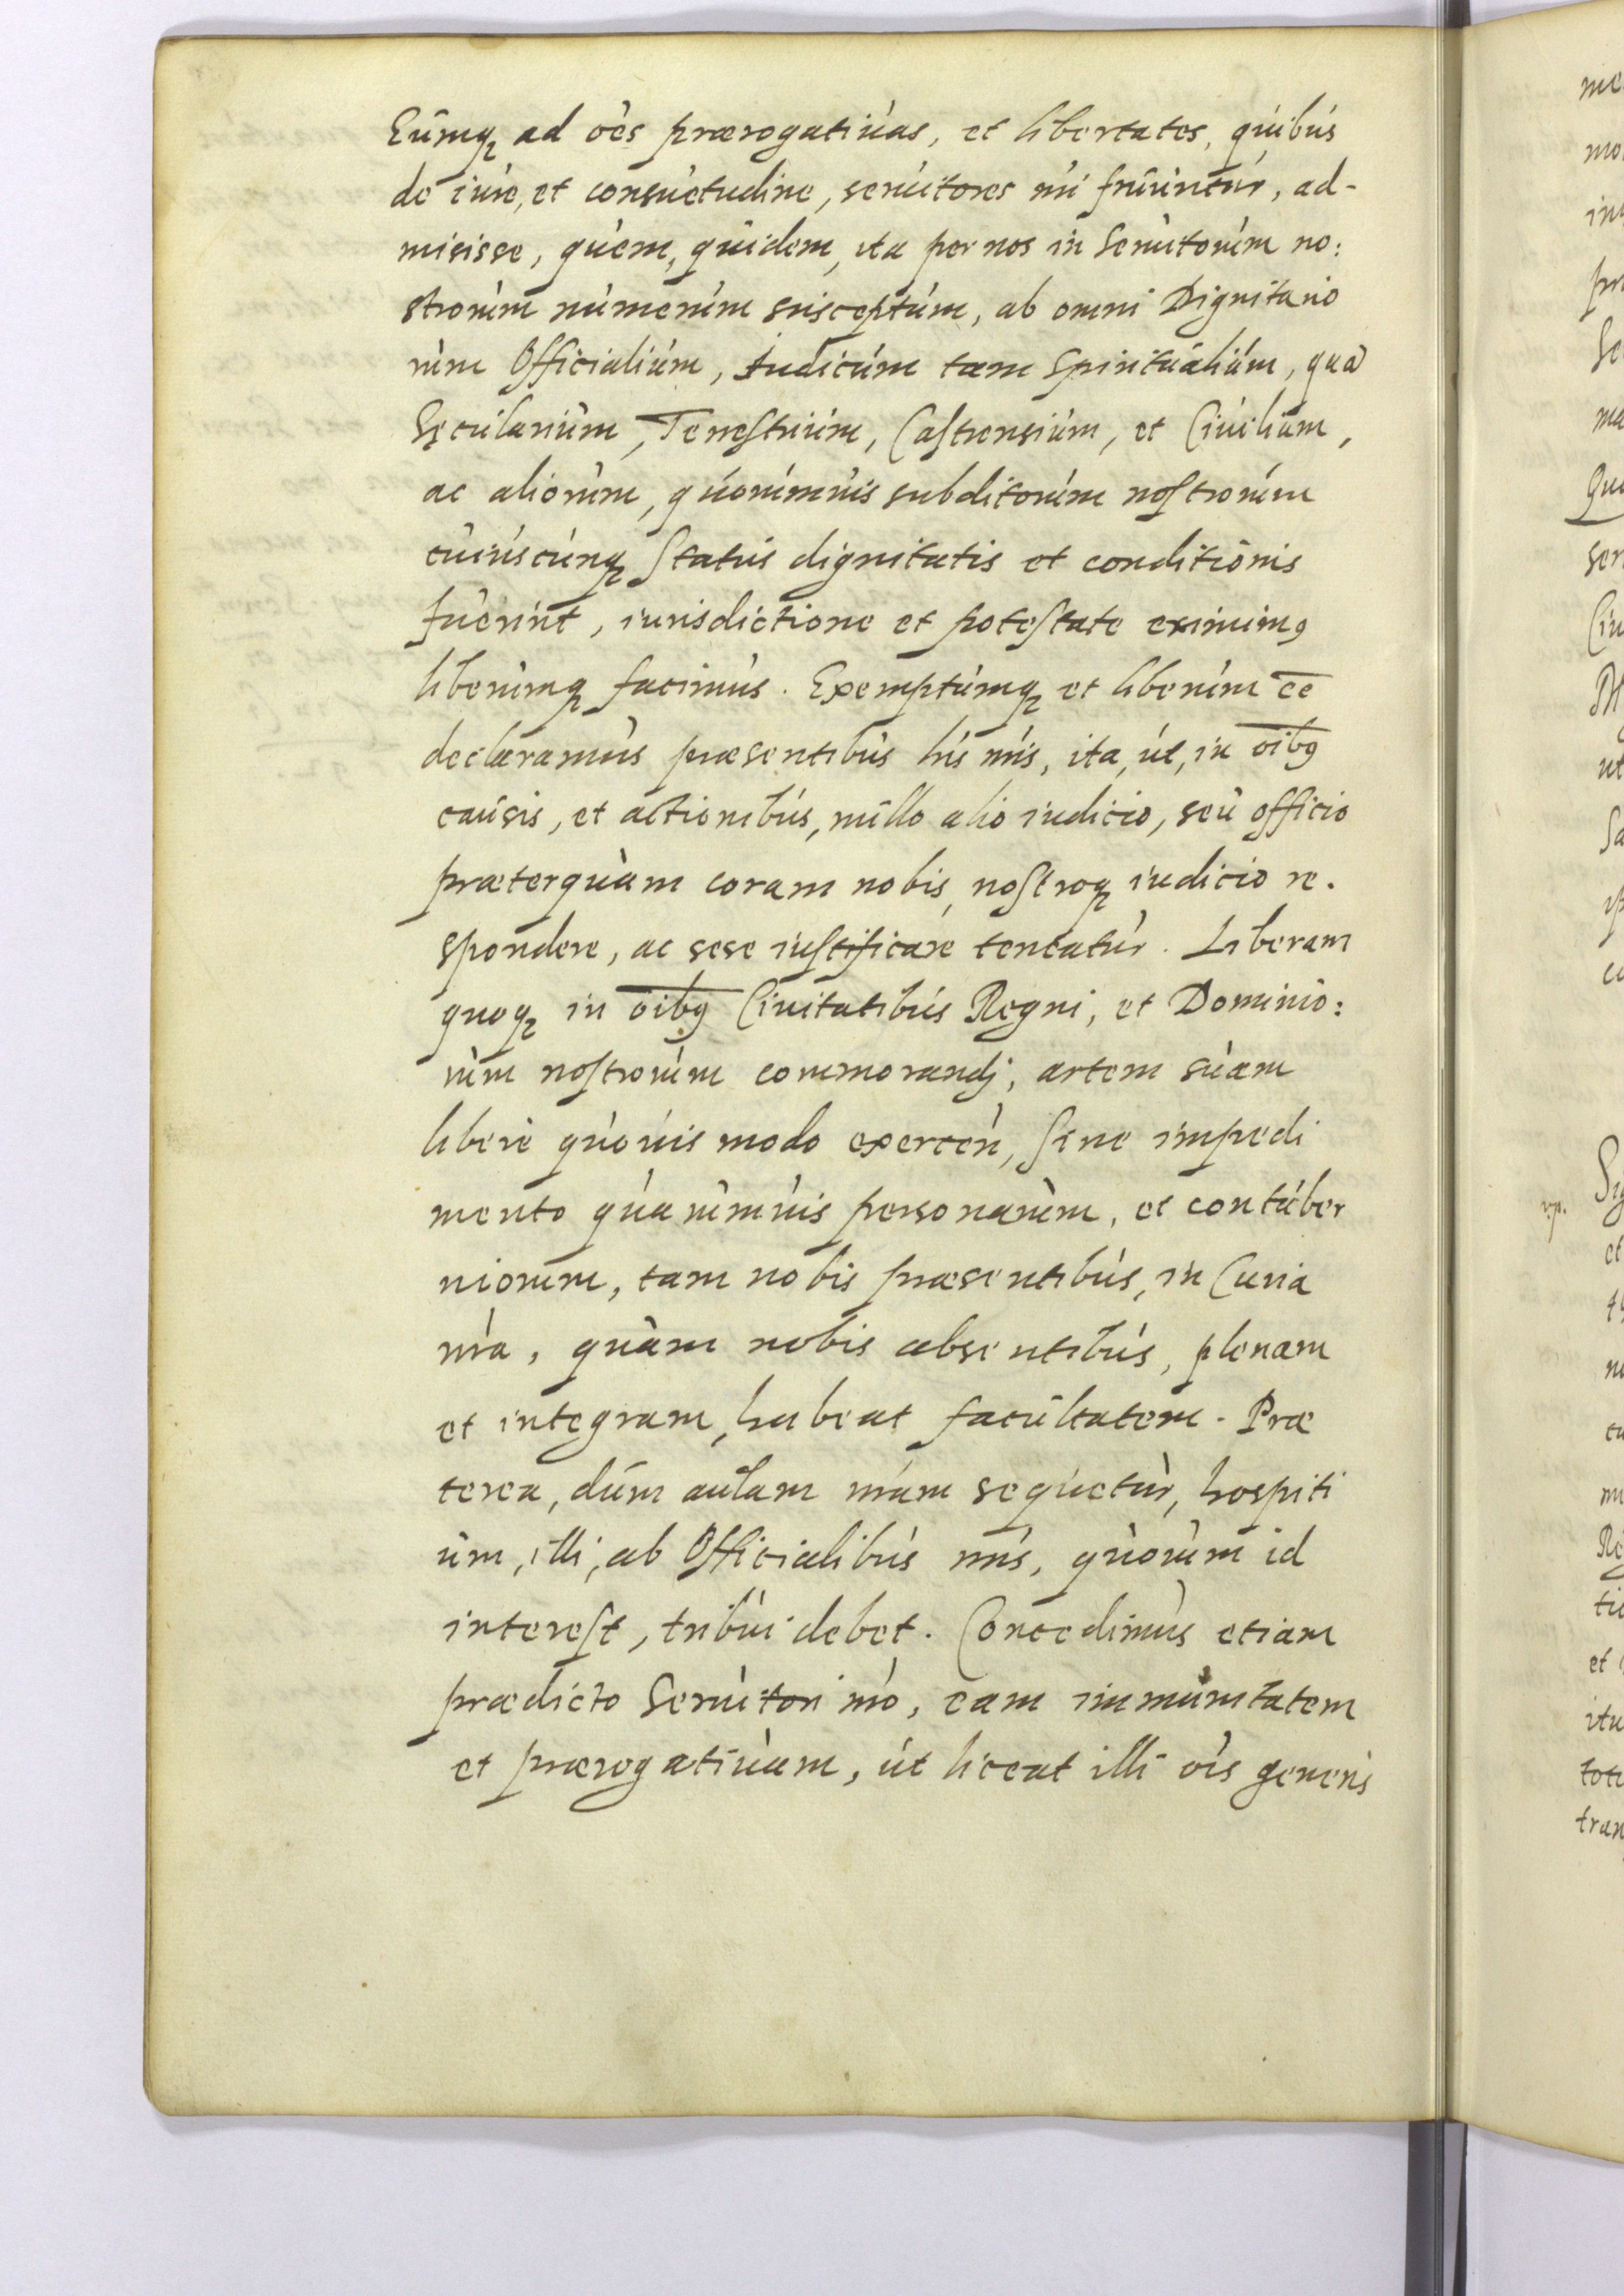 Eumq₂ ad oe̅s prærogatiuas, et libertates, quibus
de iure, et consuetudine, seruitores nr̅i fruuntur, ad-
misisse, quem, quidem, ita per nos in Seruitorum no:
strorum numerum susceptum, ab omni Dignitario
rum Officialium, Iudicum tam Spiritualium, qua̅
Sęcularium, Terrestrium, Castrensium, et Ciuilium,
ac aliorum, quorumuis subditorum nostrorum
cuiuscunq₂ status dignitatis et conditionis
fuerint, iurisdictione et potestate eximimꝰ
liberumq₂ facimus. Exemptumq₂ et liberum ee̅
declaramus præsentibus his nr̅is, ita, ut, in oi̅bꝰ
causis, et actionibus, nullo alio iudicio, seu officio
præterquam coram nobis, nostroq₂ iudicio re.
spondere, ac sese iustificare teneatur. Liberam
quoq₂ in oi̅bꝰ Ciuitatibus Regni, et Dominio:
rum nostrorum commorandj, artem suam
libere quouis modo exercen̅, sine impedi
mento quarumuis personarum, et contuber
niorum, tam nobis præsentibus, in Curia
nr̅a, quam nobis absentibus, plenam
et integram, habeat facultatem. Præ
terea, dum aulam nr̅am sequetur, hospiti
um, illi, ab Officialibus nr̅is, quorum id
interest, tribui debet. Concedimus etiam
prædicto Seruitori nr̅o, eam immunitatem
et prærogatiuam, ut liceat illi oi̅s generis
me
mo
ing
pr
Se
ma
Qu
ser
Ciu
ut
Sa
ip
ca
vp.
Sig
et
ne
cu
mi
Re
tio
et
itu
toti
tran